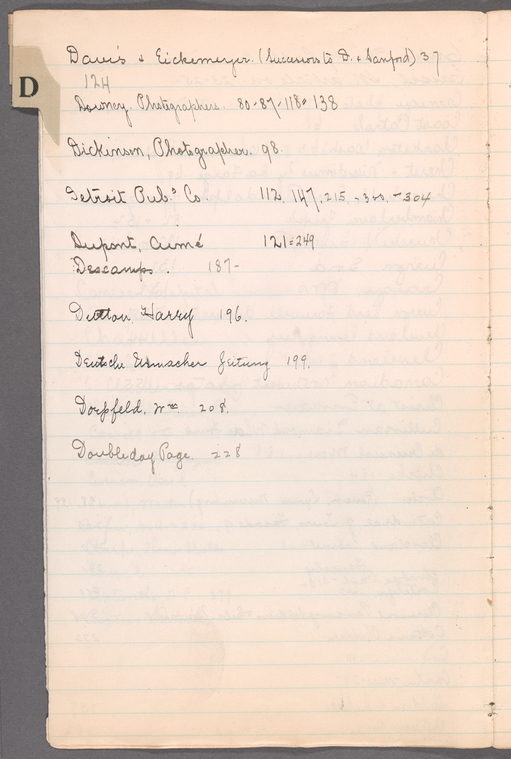 D
Davis & Eickemeyer. (Successors to D. & Sanford) 37
124
Downey, Photographers. 80-87-118-138
Dickinson, Photographer. 98.
Detroit Pub.g Co. 112, 147, 215, -304
Dupont, Aimé 121=249
Descamps. 187-
Dutton, Harry 196.
Deutsche Uhrmacher Zeitung 199.
Dorpfeld, Wm. 208.
Doubleday Page. 228